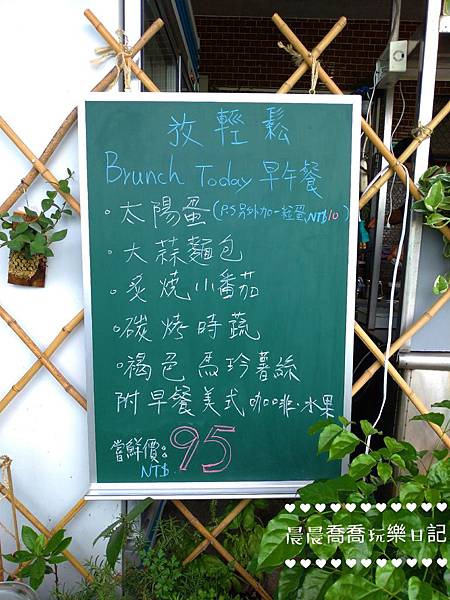 放輕鬆
Brunch Today 早午餐
·太陽蛋(P.S另外加一粒蛋NT$10)
·大蒜麵包
·炙燒小番茄
·碳烤時蔬
·褐色馬珍薯絲
附早餐美式咖啡·水果
嘗鮮價:95
NT$
晨晨喬喬玩樂日記